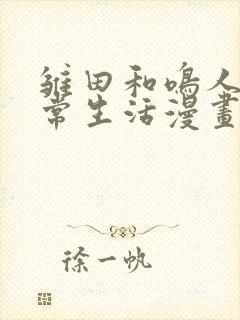 雏田和鳴人
常生活漫畫
徐一帆